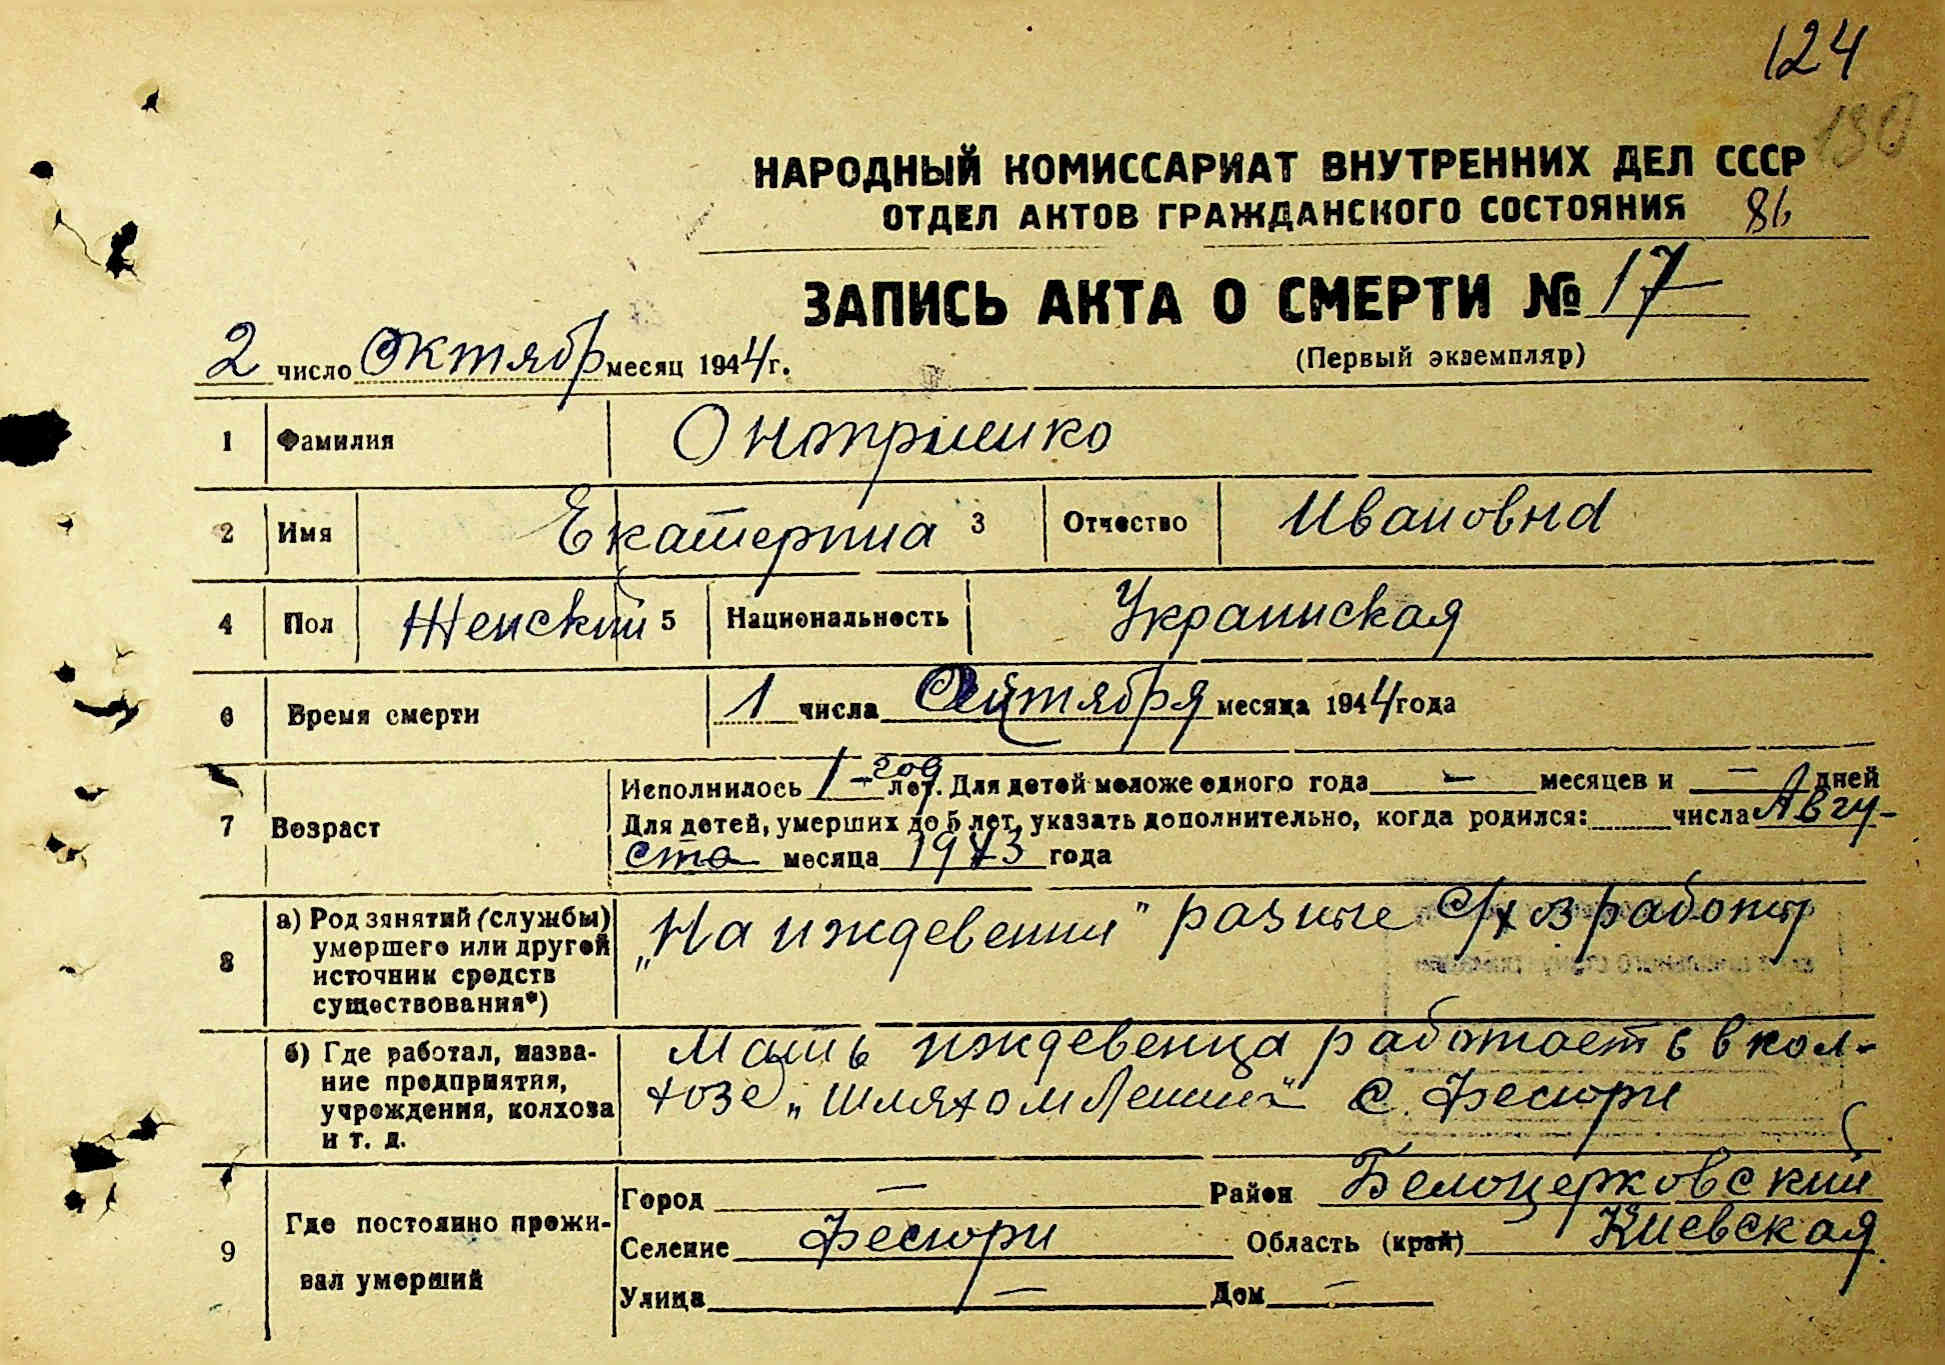 124
130
НАРОДНЫЙ КОМИССАРИАТ ВНУТРЕННИХ ДЕЛ СССР
ОТДЕЛ АКТОВ ГРАЖДАНСКОГО СОСТОЯНИЯ 86
ЗАПИСЬ АКТА О СМЕРТИ № 17
2 число Октябр месяц 1944 г.
(Первый экземпляр)
1 Фамилия Онопришко
2 Имя Екатерина 3 Отчество Ивановна
4 Пол Женский 5 Национальность Украинская
6 Время смерти 1 числа Октября месяца 1944 года
7 Возраст Исполнилось 1-год лет. Для детей моложе одного года — месяцев и — дней
Для детей, умерших до 5 лет, указать дополнительно, когда родился: числа Авгу-
ста месяца 1943 года
8 а) Род занятий (службы) умершего или другой источник средств существования*) „На иждевении" разные с/хоз работы
б) Где работал, назва-
ние предприятия,
учреждения, колхоза
и т. д.
Мать иждевенца работаеть в кол-
хозе „Шляхом Ленина" с. Фесюри
9 Где постоянно прожи-
вал умерший
Город — Район Белоцерковский
Селение Фесюри Область (край) Киевская
Улица — Дом —